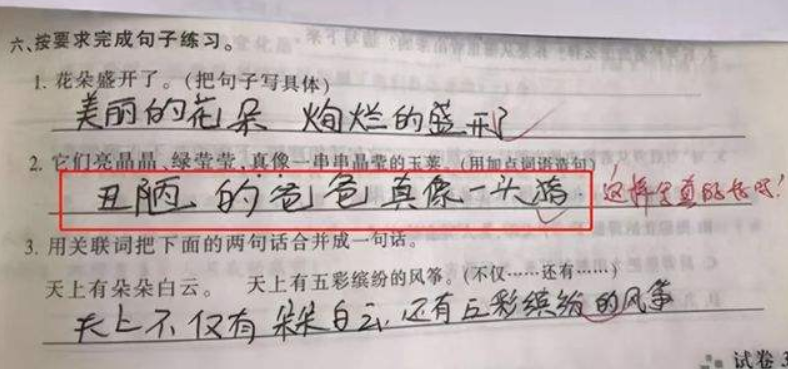 六、按要求完成句子练习。
1. 花朵盛开了。(把句子写具体)
美丽的花朵 绚烂的盛开了
2. 它们亮晶晶、绿莹莹,真像一串串晶莹的玉莱。(用加点词语造句)
丑陋的爸爸真像一头猪. 这样写真的好吗!
3. 用关联词把下面的两句话合并成一句话。
天上有朵朵白云。 天上有五彩缤纷的风筝。(不仅……还有……)
天上不仅有朵朵白云,还有五彩缤纷的风筝
试卷 3